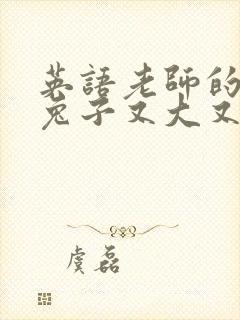 英語老師的
兔子又大又
虞磊